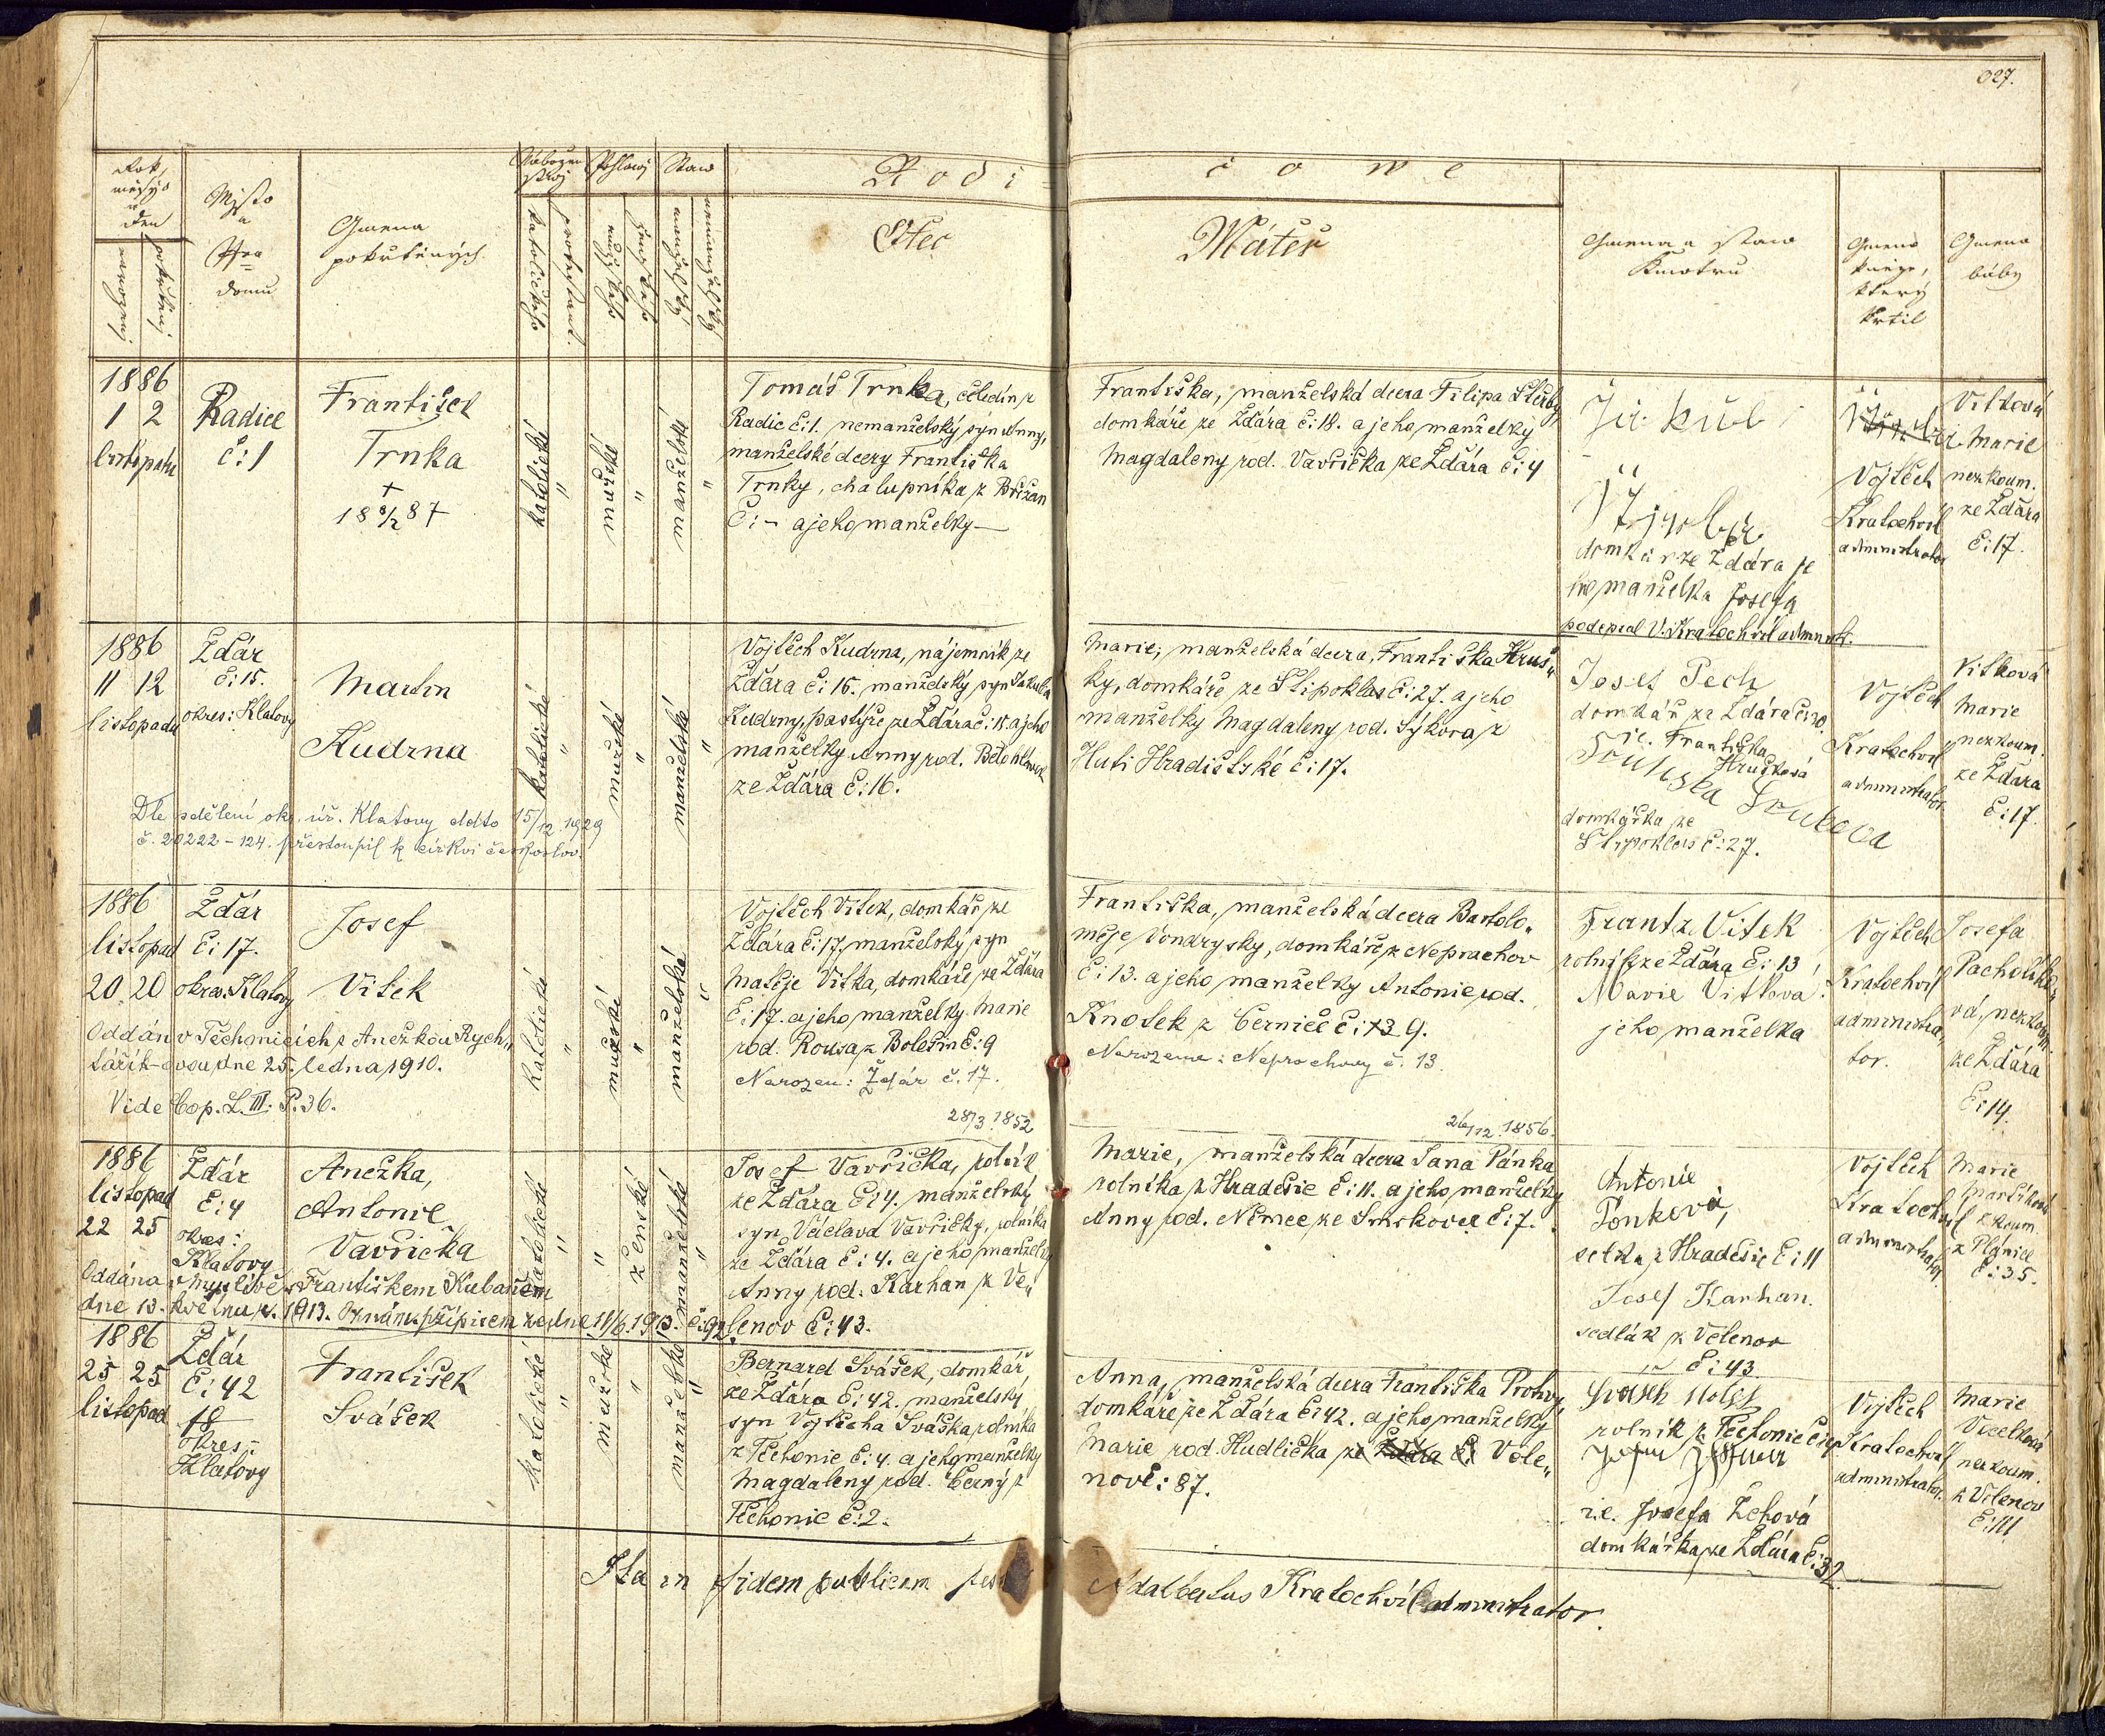 027.
Rok,
měsýc
a
den
narozenj
pokřtěnj
Mjsto
a
Čjslo
domu
Gmena
pokřtěných
Nábožen
stwj
katolického
protestant.
Pohlawj
mužského
ženského
Staw
manželský
nemanželský
Rodi-
čowé
Otec
Máteř
Gmena a staw
Kmotrů
Gmeno
kněze,
který
křtil
Gmeno
báby
1886
1 2
listopadu
Radice
č:1
František
Trnka
+
18 8/2 87
katolické
"
mužské
"
manželské
"
Tomáš Trnka, čeledín z
Radic č:1. nemanželský syn Anny,
manželské dcery Františka
Trnky, chalupníka z Břižan
č: – a jeho manželky –
Františka, manželská dcera Filipa Štěrby,
domkáře ze Ždára č:18. a jeho manželky
Magdaleny rod. Vavřička ze Ždára č:4
domkář ze Ždára je
ho manželka Josefa
podepsal V. Kratochvíl administr.
Vojtěch
Kratochvíl
administrator
Vítková
Marie
nezkoum.
ze Ždára
č:17.
1886
11 12
listopadu
Ždár
č:15.
okres: Klatovy
Martin
Kudrna
katolické
"
mužské
"
manželské
"
Vojtěch Kudrna, nájemník ze
Ždára č:15. manželský syn Jakuba
Kudrny, pastýře ze Ždára č:15. a jeho
manželky Anny rod. Bělohlávek
ze Ždára č:16.
Marie, manželská dcera, Františka Hruš„
ky, domkáře ze Štipoklas č:27. a jeho
manželky Magdaleny rod. Sýkora z
Huti Hradištské č:17.
Josef Pech
domkář ze Ždára č:20.
i.e. Františka
Hrušková
domkářka ze
Štipoklas č:27.
Vojtěch
Kratochvíl
administrator
Vítková
Marie
nezkoum.
ze Ždára
č:17.
Dle sdělení okr. úř. Klatovy ddto 15/12. 1929
č. 20222 – 124. přestoupil k církvi českoslov.
1886
listopad
20. 20
Ždár
č:17.
okres. Klatovy
Josef
Vítek
katolické
"
mužské
"
manželské
"
Vojtěch Vítek, domkář ze
Ždára č:17, manželský syn
Matěje Vítka, domkáře ze Ždára
č:17. a jeho manželky Marie
rod. Rousa z Bolešin č:9
Narozen: Ždár č. 17.
28/3. 1852
Františka, manželská dcera Bartolo„
měje Vondrysky, domkáře z Neprachov
č:13. a jeho manželky Antonie rod.
Knotek z Černice č: 9.
Narozena: Neprochovy č. 13.
26/12. 1856.
Frantz Vitek
rolník ze Ždára č:13
Marie Vítková
jeho manželka
Vojtěch
Kratochvíl
administra„
tor.
Josefa
Pacholíko„
vá, nezkoum.
ze Ždára
č:14.
Oddán v Těchonicích s Anežkou Rych„
tářík-ovou dne 25. ledna 1910.
Vide Cop. L. III. P. 36.
1886
listopad
22 25
Ždár
č:4
okres:
Klatovy
Anežka,
Antonie,
Vavřička
katolické
"
"
ženské
manželské
"
Josef Vavřička, rolník
ze Ždára č:4. manželský
syn Václava Vavřičky, rolníka
ze Ždára č:4. a jeho manželky
Anny rod. Karhan z Ve„
lenov č:43.
Marie, manželská dcera Jana Pánka
rolníka z Hradešic č:11. a jeho manželky
Anny rod. Němec ze Smrkovec č:7.
Antonie
Ponková,
selka z Hradešic č:11
Josef Karhan.
sedlák z Velenov
č:43.
Vojtěch
Kratochvíl
administrator
Marie
zkoum.
z Plánice
č:35.
Oddána v Myslívě s Františkem Kubaněm
dne 13. května r. 1913. Oznám. přípisem ze dne 11/6. 1913. č. 92.
1886
25 25
listopad
Ždár
č:42
18
okres:
Klatovy
František
Svášek
katolické
"
mužské
"
manželské
"
Bernard Svášek, domkář
ze Ždára č:42. manželský
syn Vojtěcha Sváška rolníka
z Těchonic č:4. a jeho manželky
Magdaleny rod. Černý z
Těchonic č:2.
Anna, manželská dcera Františka
domkáře ze Ždára č:42. a jeho manželky
Marie rod. Hudlička ze Ždára č: Vele„
nov č: 87.
Svášek
rolník z Těchonic
i.e. Josefa Zehová
domkářka ze Ždára č:32
Vojtěch
Kratochvíl
administrator.
Marie
nezkoum.
z Velenov
Ita in fidem publicam
Adalbertus Kratochvíl administrator.